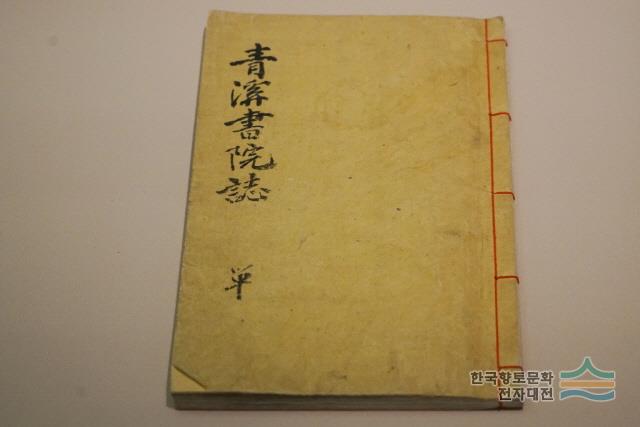 青溪書院誌
単
한국향토문화
전자대전